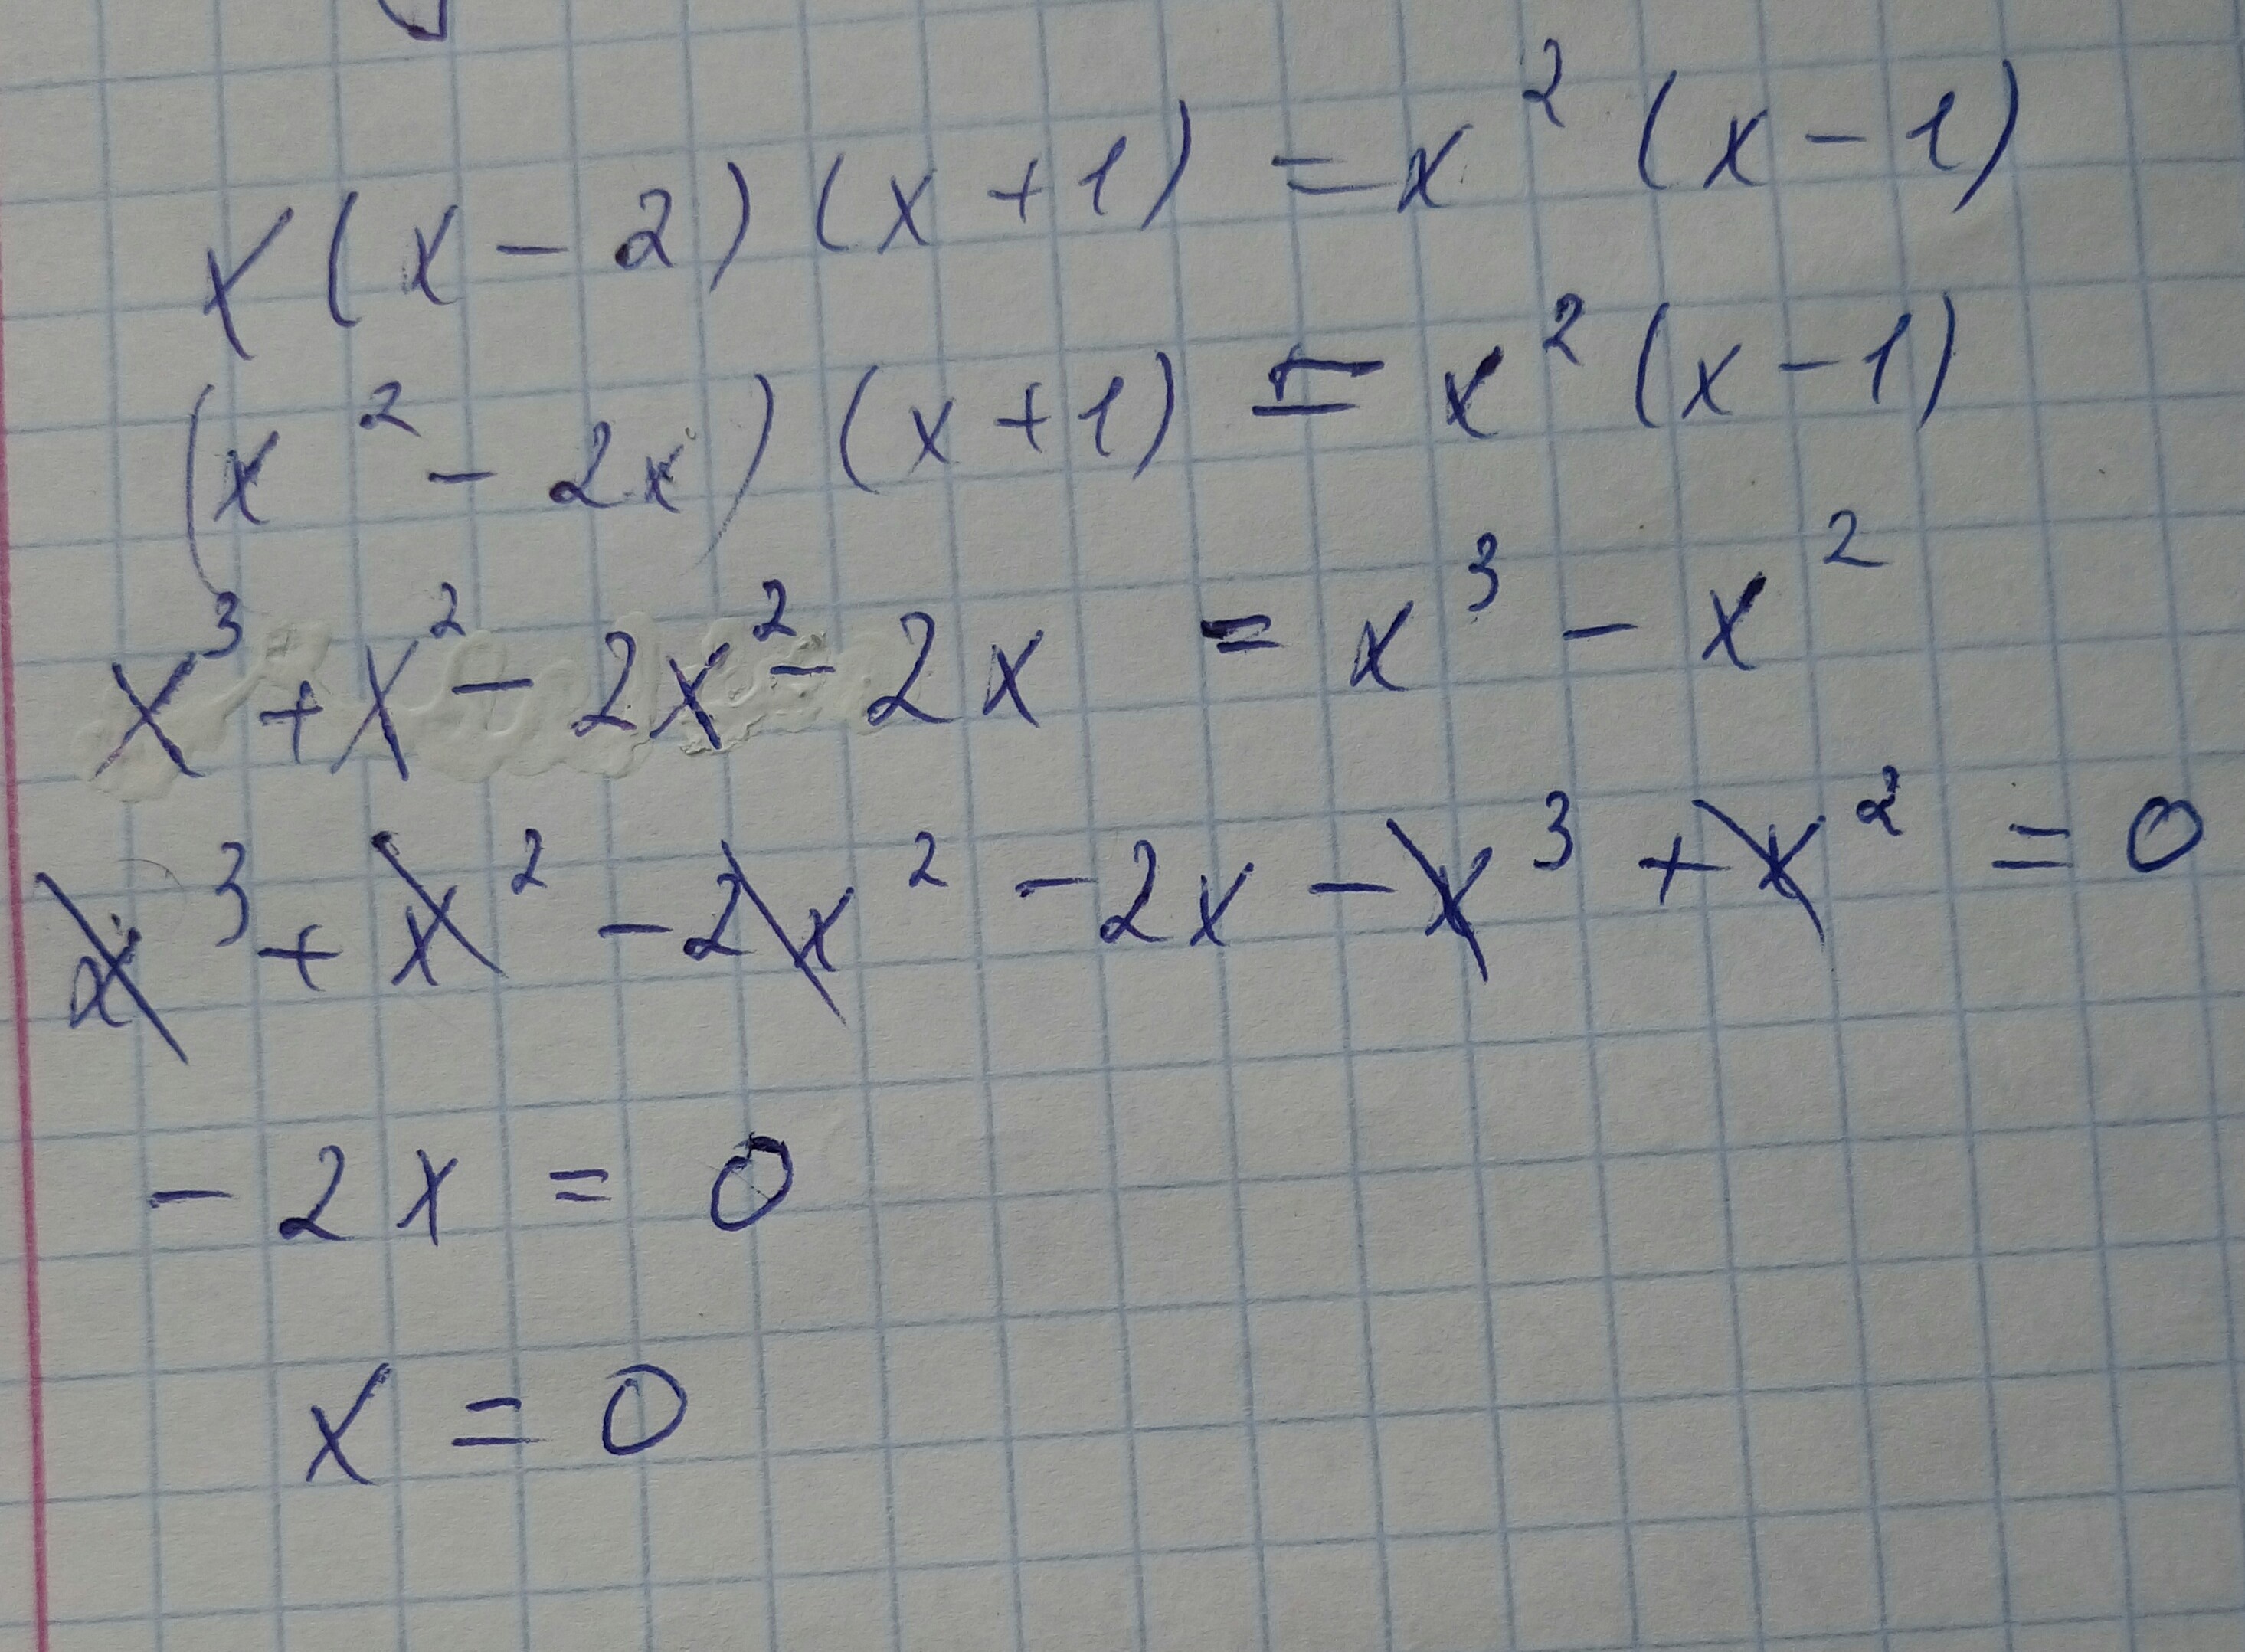 x(x-2)(x+1)=x²(x-1)
(x²-2x)(x+1)=x²(x-1)
x³+x²-2x²-2x=x³-x²
x³+x²-2x²-2x-x³+x²=0
-2x=0
x=0